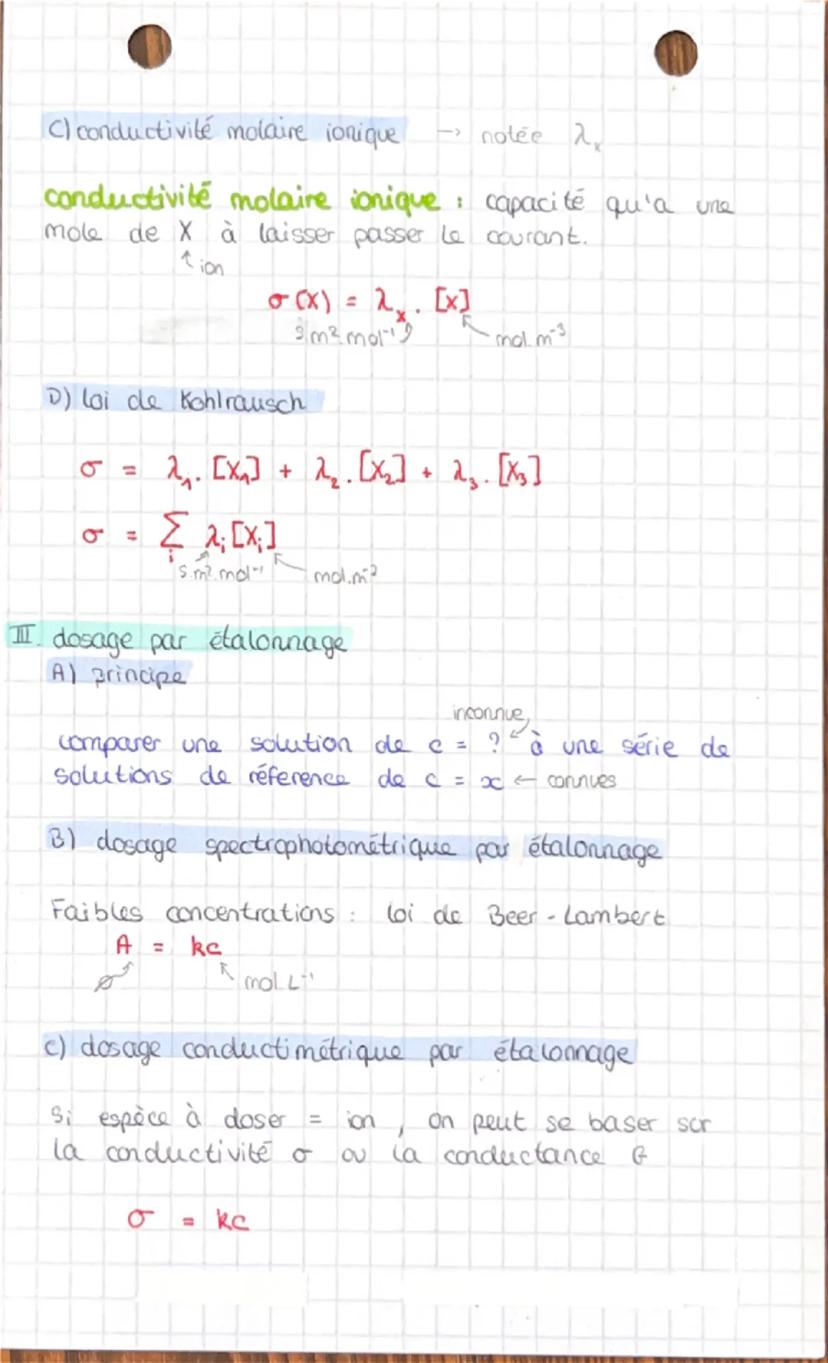 C) conductivité molaire ionique → notée λₓ
conductivité molaire ionique : capacité qu'a une
mole de X à laisser passer le courant.
↑ ion
σ(X) = λₓ . [X]
S.m².mol⁻¹ mol.m⁻³
D) loi de Kohlrausch
σ = λ₁.[X₁] + λ₂.[X₂] + λ₃.[X₃]
σ = Σᵢ λᵢ[Xᵢ]
S.m².mol⁻¹ mol.m⁻³
III. dosage par étalonnage
A) principe
inconnue
comparer une solution de c = ? à une série de
solutions de réference de c = x ← connues
B) dosage spectrophotométrique par étalonnage
Faibles concentrations : loi de Beer-Lambert
A = kc
∅ mol.L⁻¹
C) dosage conductimétrique par étalonnage
Si espèce à doser = ion, on peut se baser sur
la conductivité σ ou la conductance G
σ = kc